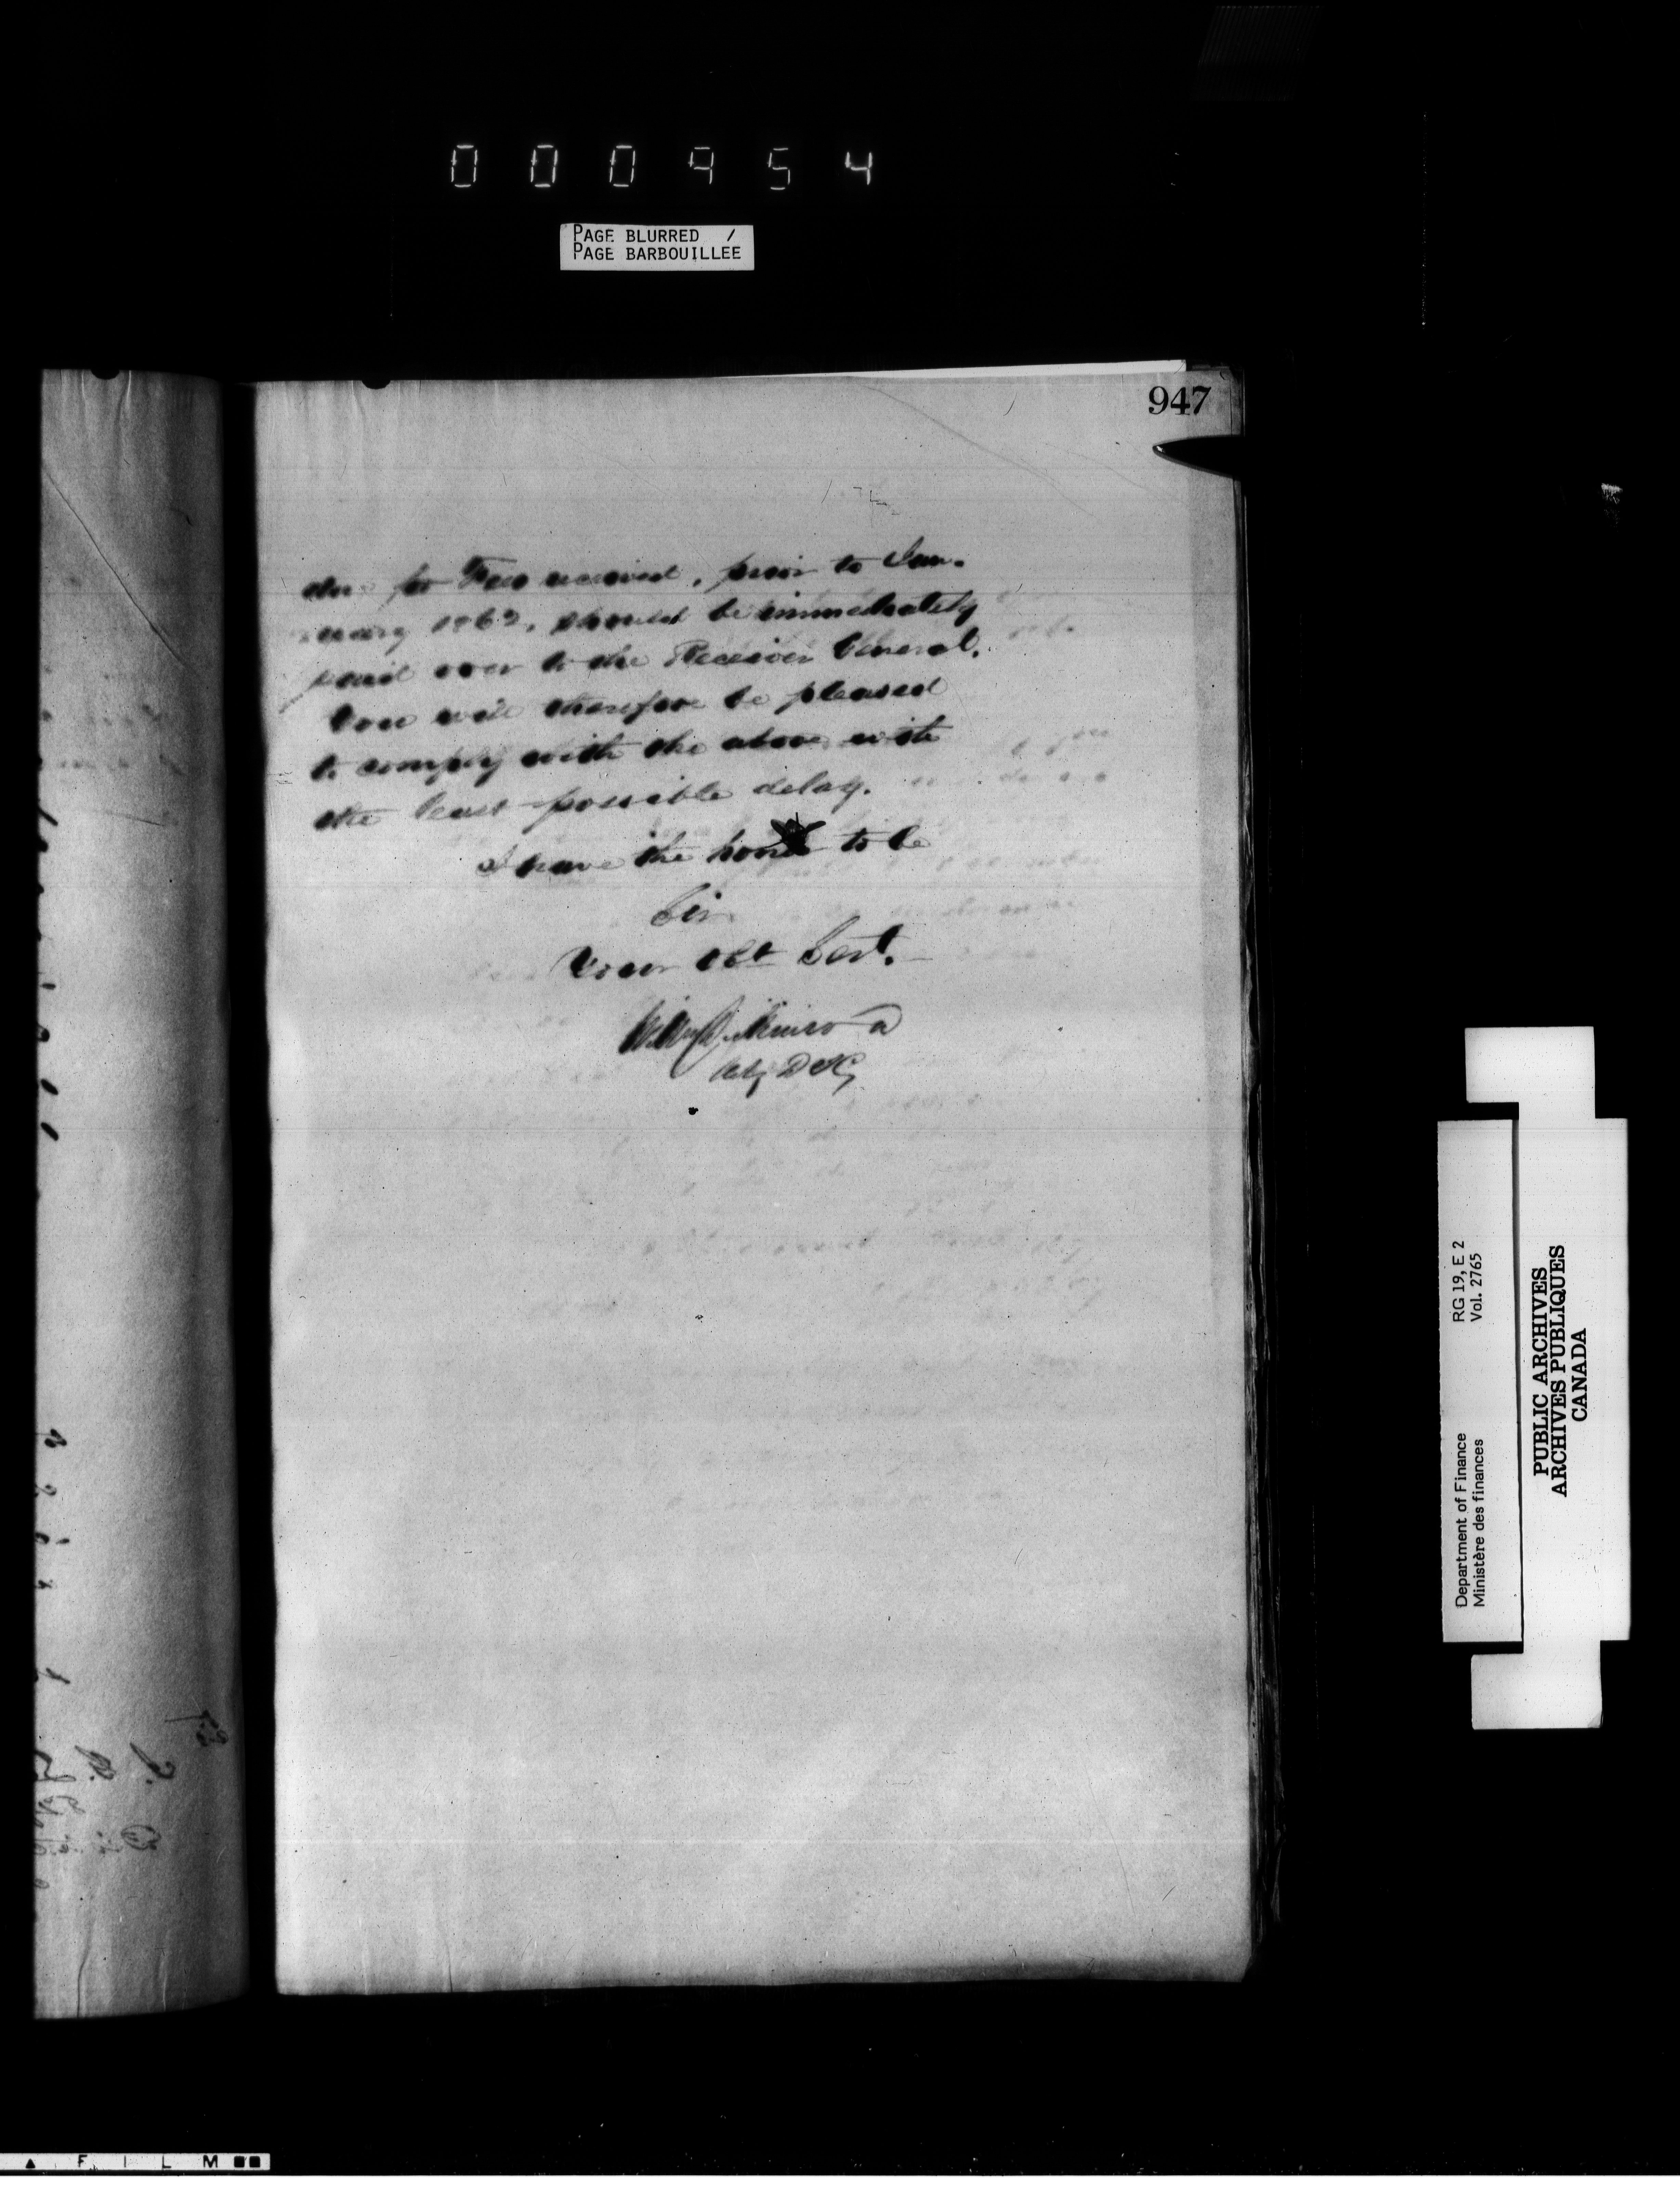 000954
PAGE BLURRED /
PAGE BARBOUILLEE
947
due for Fees received, prior to Jan-
uary 1862, should be immediately
paid over to the Receiver General.
You will therefore be pleased
to comply with the above with
the least possible delay.
I have the honor to be
Sir
Your Obt Servt.
Dickinson
Actg DIG
Department of Finance RG 19, E 2
Ministère des finances Vol. 2765
PUBLIC ARCHIVES
ARCHIVES PUBLIQUES
CANADA
FILM